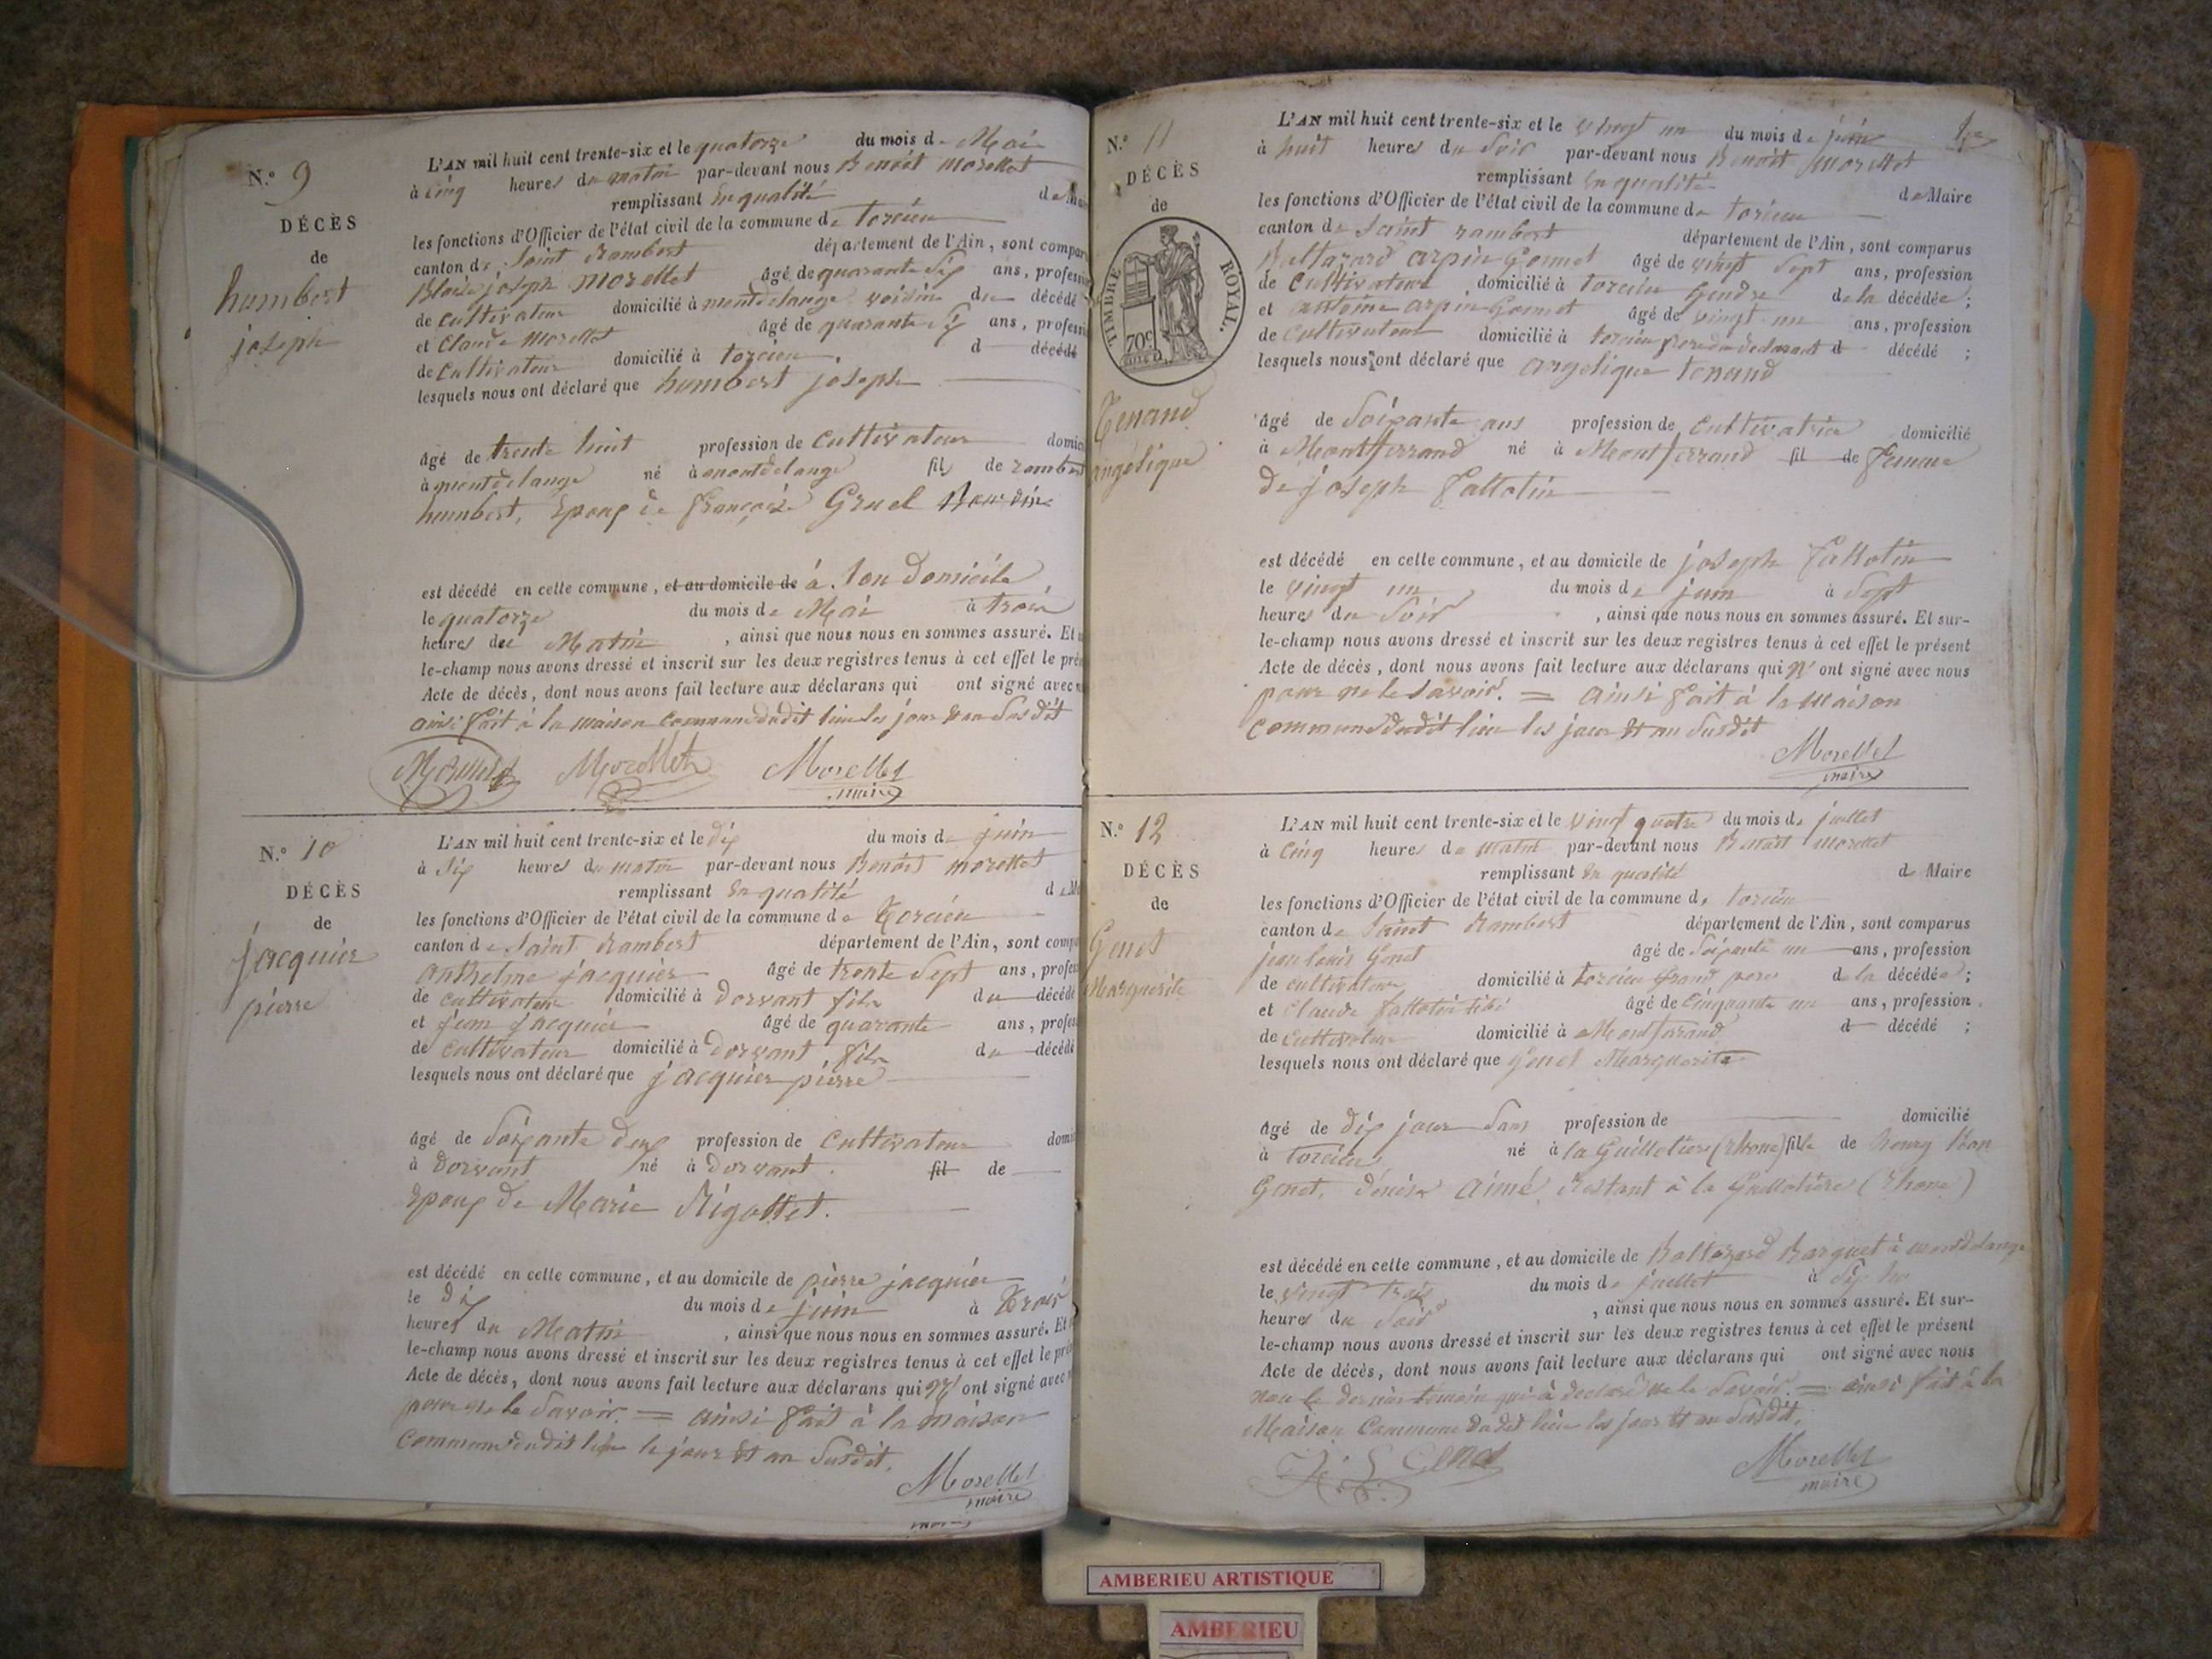 N.º 9
DÉCÈS
de
humbert
joseph
L'AN mil huit cent trente-six et le quatorze du mois de Mai
à cinq heures du matin par-devant nous Benoit Morellet
remplissant en qualité de
les fonctions d'Officier de l'état civil de la commune de torcieu
canton de Saint Rambert département de l'Ain, sont compar
Blaise joseph Morellet âgé de quarante six ans, professi
de cultivateur domicilié à montdelange voisin du décédé
et Claude Morellet âgé de quarante six ans, profess
de Cultivateur domicilié à torcieu. d décédé
lesquels nous ont déclaré que humbert joseph
âgé de trente huit profession de cultivateur domici
à montdelange né à montdelange fil de rambert
humbert, Epoux de françoise Gruel
est décédé en cette commune, et au domicile de à son domicile
le quatorze du mois de Mai à trois
heures du Matin, ainsi que nous nous en sommes assuré. Et
le-champ nous avons dressé et inscrit sur les deux registres tenus à cet effet le pré
Acte de décès, dont nous avons fait lecture aux déclarans qui ont signé avec
ainsi fait à la maison commune dudit lieu les jour & an susdit
Morellet Morellet Morellet
maire
N.º 10
DÉCÈS
de
jacquier
pierre
L'AN mil huit cent trente-six et le dix du mois de juin
à six heures du matin par-devant nous Benoit Morellet
remplissant en qualité de
les fonctions d'Officier de l'état civil de la commune de Torcieu
canton de Saint Rambert département de l'Ain, sont comp
Anthelme jacquier âgé de trente sept ans, profes
de cultivateur domicilié à dorvant fils du décédé
et jean jacquier âgé de quarante ans, profes
de cultivateur domicilié à dorvant, fils du décédé
lesquels nous ont déclaré que jacquier pierre
âgé de soixante deux profession de cultivateur domi
à dorvant né à dorvant. fil de
Epoux de Marie Rigollet.
est décédé en cette commune, et au domicile de pierre jacquier
le dix du mois de juin à trois
heures du Matin, ainsi que nous nous en sommes assuré. Et
le-champ nous avons dressé et inscrit sur les deux registres tenus à cet effet le pré
Acte de décès, dont nous avons fait lecture aux déclarans qui n' ont signé avec
pour ne le savoir. = ainsi fait à la maison
commune dudit lieu le jour & an susdit.
Morellet
maire
N.º 11
DÉCÈS
de
TIMBRE ROYAL.
70c
Tenand
angelique
L'AN mil huit cent trente-six et le vingt un du mois de juin
à huit heures du soir par-devant nous Benoit Morellet
remplissant en qualité de Maire
les fonctions d'Officier de l'état civil de la commune de torcieu
canton de Saint rambert département de l'Ain, sont comparus
Baltazard arpin gonnet âgé de vingt sept ans, profession
de Cultivateur domicilié à torcieu Gendre de la décédée;
et antoine arpin Gonnet âgé de vingt un ans, profession
de cultivateur domicilié à torcieu frere du declarant d décédé;
lesquels nous ont déclaré que angelique tenand
âgé de soixante ans profession de cultivatrice domicilié
à Montferrand né à Montferrand fil de femme
de joseph fallatin
est décédé en cette commune, et au domicile de joseph fallatin
le vingt un du mois de juin à sept
heures du soir, ainsi que nous nous en sommes assuré. Et sur-
le-champ nous avons dressé et inscrit sur les deux registres tenus à cet effet le présent
Acte de décès, dont nous avons fait lecture aux déclarans qui n' ont signé avec nous
pour ne le savoir. = ainsi fait à la maison
commune dudit lieu les jour & an susdit
Morellet
maire
N.º 12
DÉCÈS
de
Genet
Marguerite
L'AN mil huit cent trente-six et le vingt quatre du mois de juillet
à cinq heures du matin par-devant nous Benoit Morellet
remplissant en qualité de Maire
les fonctions d'Officier de l'état civil de la commune de torcieu
canton de Saint Rambert département de l'Ain, sont comparus
jean louis Genet âgé de soixante un ans, profession
de cultivateur domicilié à torcieu grand pere de la décédée;
et Claude fallatin âgé de cinquante un ans, profession
de Cultivateur domicilié à Montferrand d décédé;
lesquels nous ont déclaré que genet Marguerite
âgé de dix jour sans profession de domicilié
à torcieu né à la Guillotiere (Rhone) fille de
Genet, aimé restant à la Guillotière (Rhone)
est décédé en cette commune, et au domicile de Baltazard Barquet à montdelange
le vingt trois du mois de juillet à six
heures du soir, ainsi que nous nous en sommes assuré. Et sur-
le-champ nous avons dressé et inscrit sur les deux registres tenus à cet effet le présent
Acte de décès, dont nous avons fait lecture aux déclarans qui ont signé avec nous
non le dernier temoin qui à declaré ne le savoir. = ainsi fait à la
Maison Commune dudit lieu les jour & an susdit.
Genet Morellet
maire
AMBERIEU ARTISTIQUE
AMBERIEU